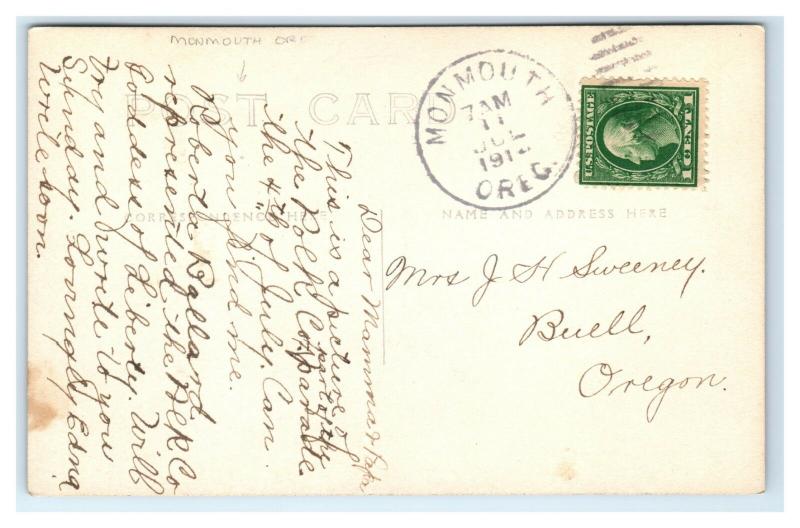 MONMOUTH ORE
POST CARD
CORRESPONDENCE HERE
NAME AND ADDRESS HERE
MONMOUTH
7 AM
11
JUL
191
OREG.
U.S. POSTAGE
1 CENT 1
Dear Mamma & Papa
This is a picture of
part of
the Polk Co. Parade
the 4th of July. Can
you find me.
Roberta Ballard
represented the Polk Co
Goddess of Liberty. Will
try and write to you
Sunday. Lovingly Edna
Write soon.
Mrs J H Sweeney.
Buell,
Oregon.